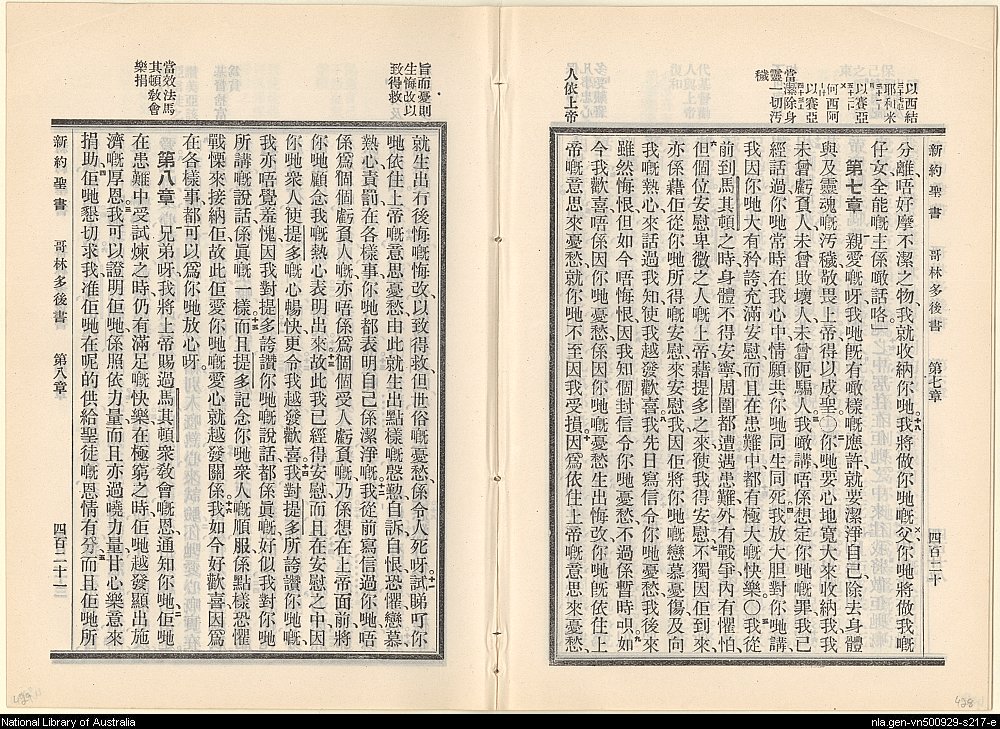 以西結
耶利米
何西阿
以賽亞
以賽亞
當潔除身
靈一切汚
穢
人依上帝
新約聖書 哥林多後書 第七章 四百二十
分離、唔好摩不潔之物、我就收納你哋、我將做你哋嘅父、你哋將做我嘅
仔女、全能嘅主係噉話咯、
第七章 親愛嘅呀、我哋旣有噉樣嘅應許、就要潔淨自己、除去身體
與及靈魂嘅汚穢、敬畏上帝、得以成聖〇你哋要心地寬大來收納我、我
未曾虧負人、未曾敗壞人、未曾阨騙人、我噉講唔係想定你哋嘅罪、我已
經話過你哋常時在我心中、情願共你哋同生同死、我放大胆對你哋講、
我因你哋大有矜誇、充滿安慰、而且在患難中、都有極大嘅快樂〇我從
前到馬其頓之時、身體不得安寧、周圍都遭遇患難、外有戰爭、內有懼怕、
但個位安慰卑微之人嘅上帝、藉提多之來、使我得安慰、不獨因佢到來、
亦係藉佢從你哋所得嘅安慰、來安慰我、因佢將你哋嘅戀慕憂傷、及向
我嘅熱心、來話過我知、使我越發歡喜、我先日寫信令你哋憂愁、我後來
雖然悔恨、但如今唔悔恨、因我知個封信令你哋憂愁、不過係暫時呮、如
今我歡喜、唔係因你哋憂愁、係因你哋嘅憂愁生出悔改、你哋旣依住上
帝嘅意思來憂愁、就你哋不至因我受損、因爲依住上帝嘅意思來憂愁、
旨而憂則
生悔改以
致得救
當效法馬
其頓敎會
樂捐
就生出冇後悔嘅悔改、以致得救、但世俗嘅憂愁、係令人死呀、試睇吓你
哋依住上帝嘅意思憂愁、由此就生出點樣嘅慇懃、自訴、自恨、恐懼、戀慕、
熱心、責罰、在各樣事你哋都表明自己係潔淨嘅、我從前寫信過你哋、唔
係爲個個虧負人嘅、亦唔係爲個個受人虧負嘅、乃係想在上帝面前、將
你哋顧念我嘅熱心表明出來、故此我已經得安慰、而且在安慰之中、因
你哋衆人、使提多嘅心暢快、更令我越發歡喜、我對提多所誇讚你哋嘅、
我亦唔覺羞愧、因我對提多誇讚你哋嘅說話、都係眞嘅、好似我對你哋
所講嘅說話、係眞嘅一樣、而且提多記念你哋衆人嘅順服、係點樣恐懼
戰慄來接納佢、故此佢愛你哋嘅愛心、就越發關係、我如今好歡喜、因爲
在各樣事都可以爲你哋放心呀、
第八章 兄弟呀、我將上帝賜過馬其頓衆敎會嘅恩、通知你哋、佢哋
在患難中受試煉之時、仍有滿足嘅快樂、在極窮之時、佢哋越發顯出施
濟嘅厚恩、我可以證明佢哋係照依力量、而且亦過曉力量、甘心樂意來
捐助、佢哋懇切求我、准佢哋在呢的供給聖徒嘅恩情有分、而且佢哋所
新約聖書 哥林多後書 第八章 四百二十一
429
428
National Library of Australia
nla.gen-vn500929-s217-e